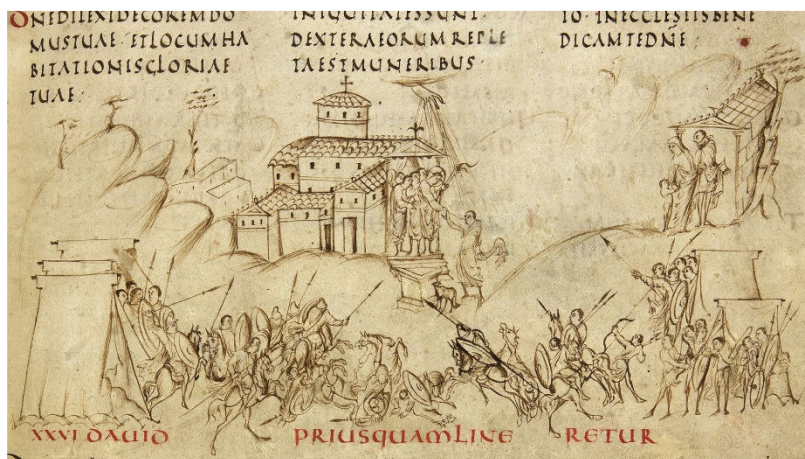 ONEDILEXIDECOREMDO
MUSTUAE·ETLOCUMHA
BITATIONISGLORIAE
TUAE·
INIQUITATESSUNT·
DEXTERAEORUMREPLE
TAESTMUNERIBUS·
TO·INECCLESIISBENE
DICAMTEDN̄E·
XXVI DAUID PRIUSQUAMLINE RETUR